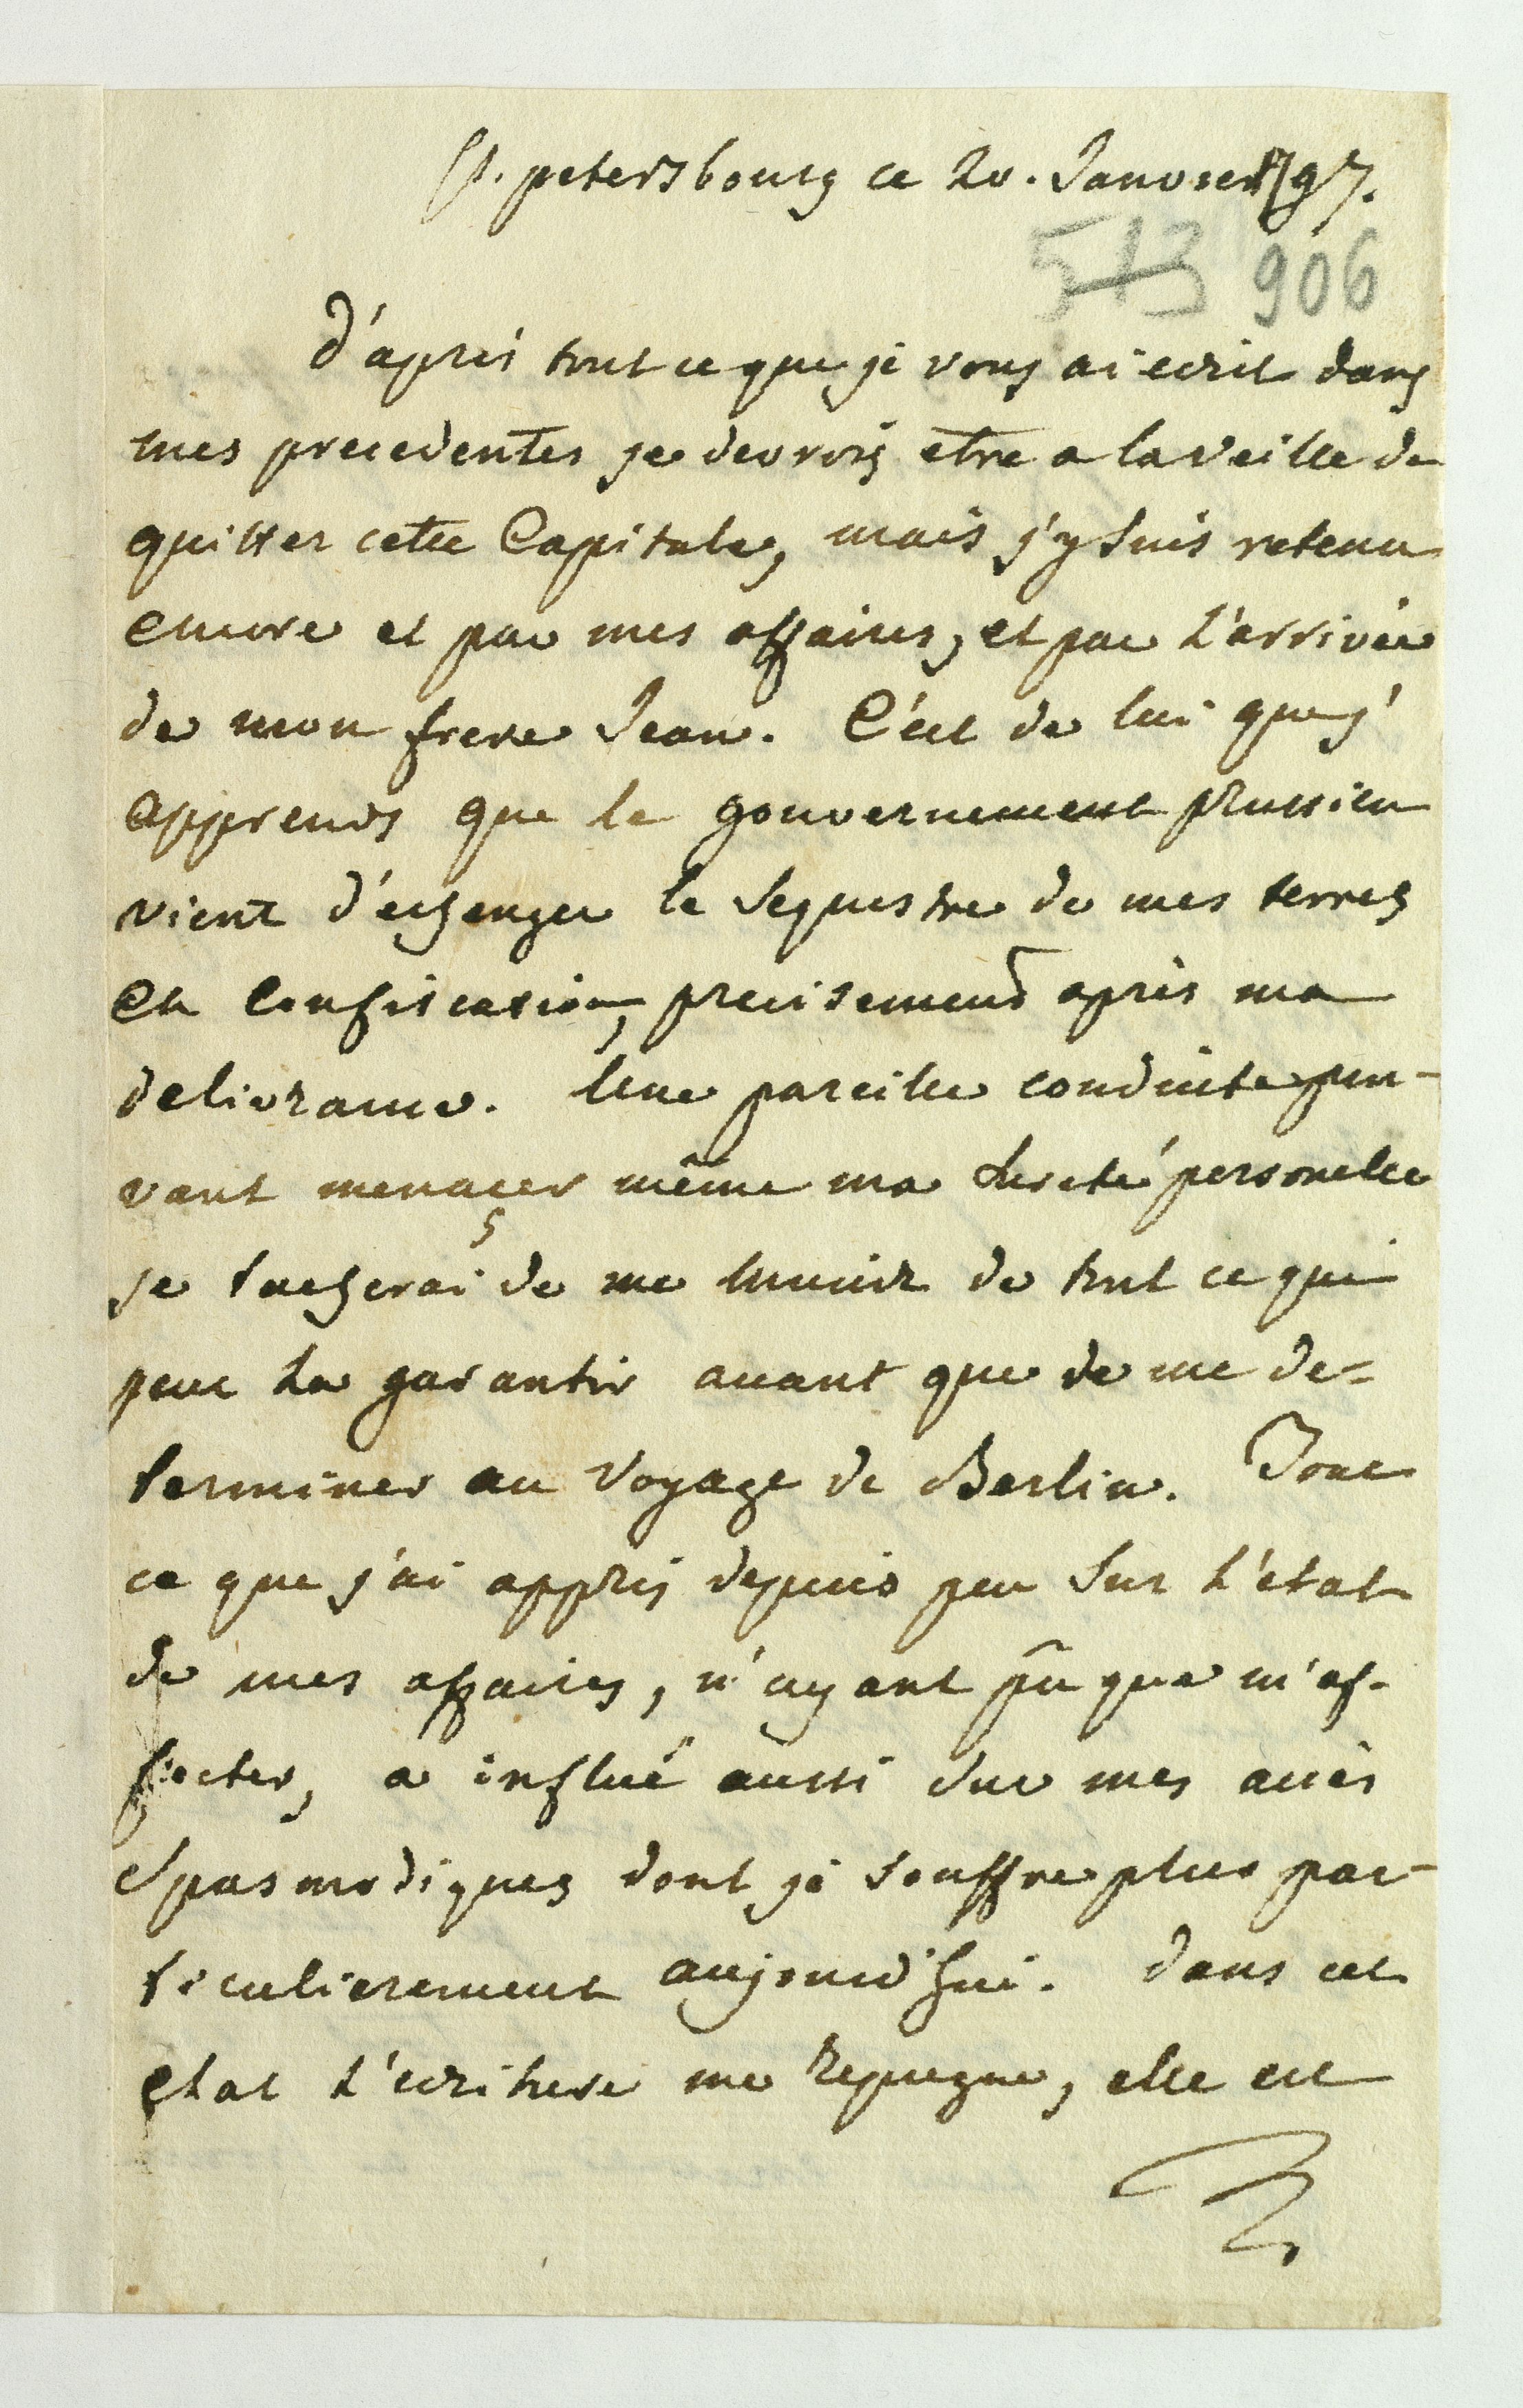 St. petersbourg ce 20. Janvier 797.
513 906
d'aprés tout ce que je vous ai ecrit dans
mes precedentes je devrois etre a la veille de
quitter cette Capitale, mais j'y suis retenu
encore et par mes affaires, et par l'arrivée
de mon frere Jean. C'est de lui que j'
apprends que le gouvernement prussien
vient d'echenger le sequestre de mes terres
en confiscation, precisement après ma
delivrance. Une pareille conduite pou-
vant menaçer même ma sureté personelle
je tacherai de me munir de tout ce qui
peut la garantir avant que de me de=
terminer au voyage de Berlin. Tout
ce que j'ai appris depuis peu sur l'état
de mes affaires, n'ayant pû que m'af-
fecter, a influé aussi sur mes accès
spasmodiques dont je souffre plus par-
ticulierement aujourd'hui. dans cet
etat l'ecriture me repugne, elle est